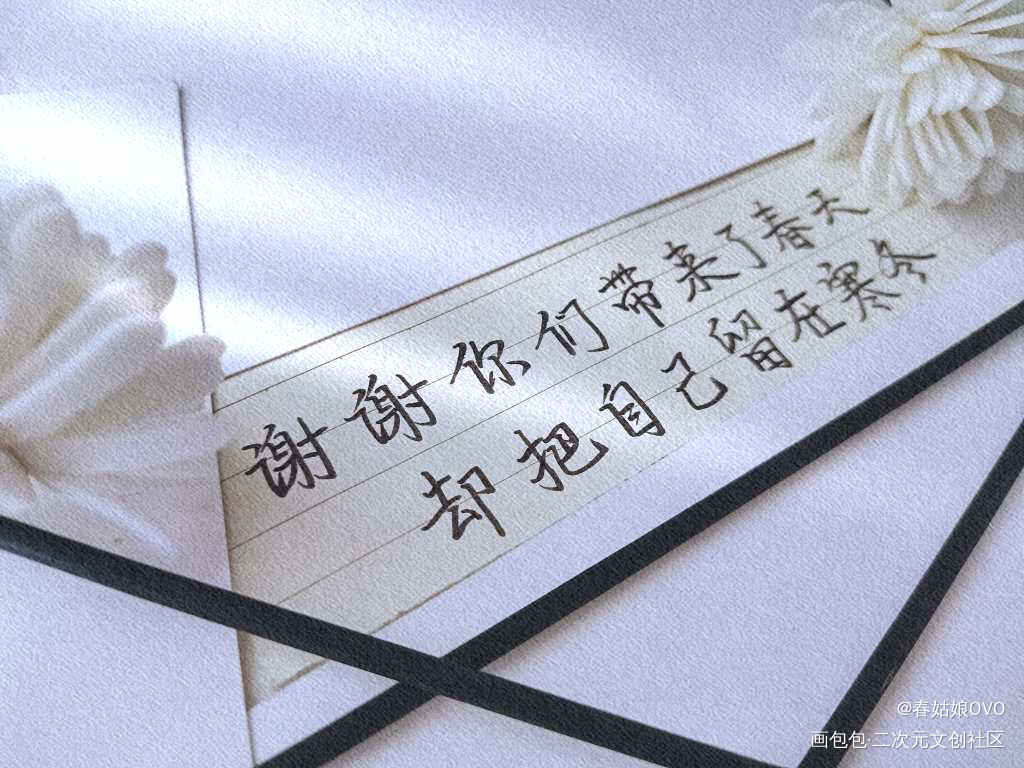 谢谢你们带来了春天
却把自己留在寒冬
@春姑娘OVO
画包包·二次元文创社区